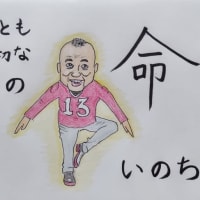 とも
切な
の
13
命
いのち